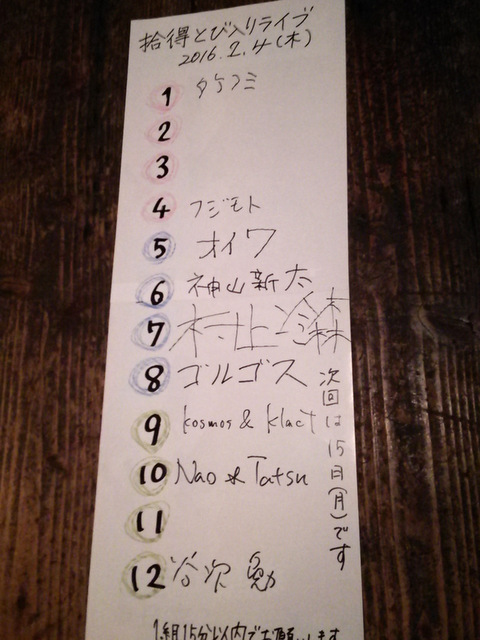 拾得とび入りライブ
2016.2.4(木)
1 タケフミ
2
3
4 フジモト
5 オイワ
6 神山新太
7 村上 森
8 ゴルゴス
9 kosmos & klact
10 Nao * Tatsu
11
12 谷次 勲
次回は15日(月)です
1組15分以内でお願いします